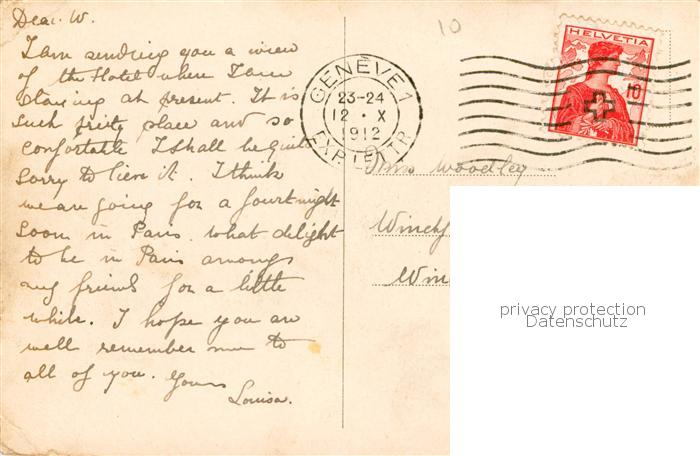 Dear W.
I am sending you a view
of the Hotel where I am
staying at present. It is
such prety place and so
confortable I shall be quite
sorry to lieve it. I think
we are going for a fourtnight
soon in Paris. what delight
to be in Paris amongs
my friends for a little
while. I hope you are
well remember me to
all of you. Yours
Louisa.
10
GENÈVE 1
23-24
12 • X
1912
EXP. LETTR.
HELVETIA
10
Miss Woodley
Winchf
Win
privacy protection
Datenschutz